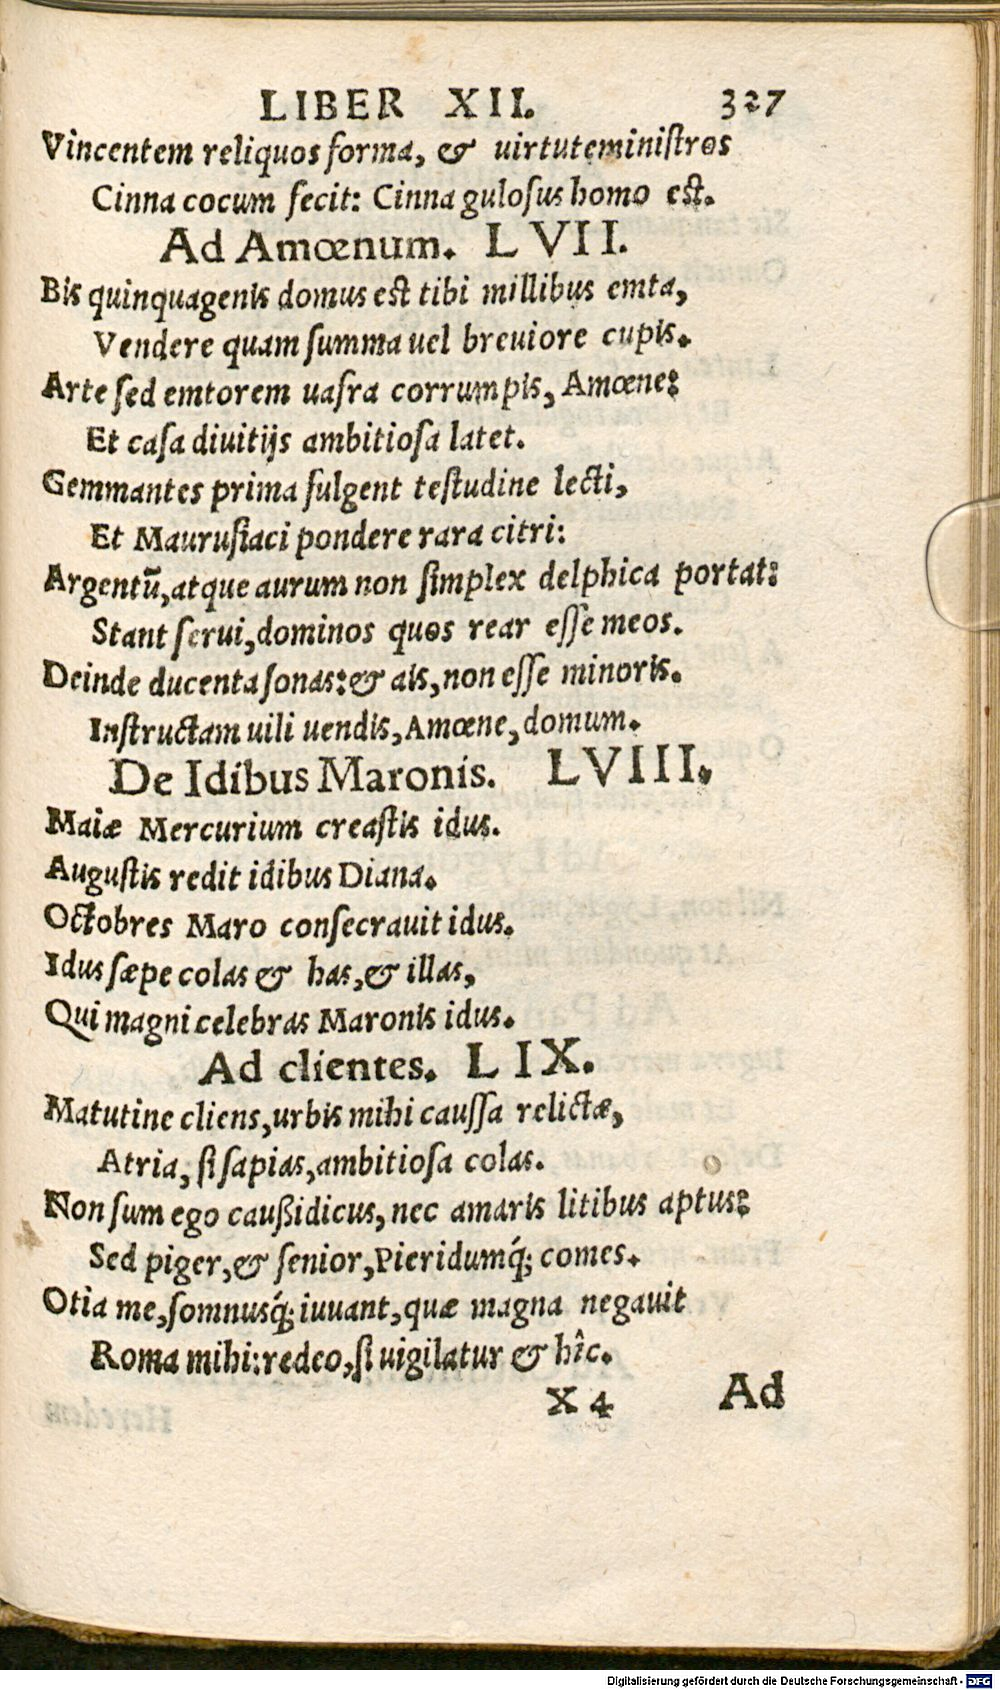 LIBER XII. 327
Vincentem reliquos forma, & uirtute ministros
Cinna cocum fecit: Cinna gulosus homo est.
Ad Amœnum. LVII.
Bis quinquagenis domus est tibi millibus emta,
Vendere quam summa uel breuiore cupis.
Arte sed emtorem uafra corrumpis, Amœne:
Et casa diuitijs ambitiosa latet.
Gemmantes prima fulgent testudine lecti,
Et Maurusiaci pondere rara citri:
Argentū, atque aurum non simplex delphica portat:
Stant serui, dominos quos rear esse meos.
Deinde ducenta sonas: & ais, non esse minoris.
Instructam uili uendis, Amœne, domum.
De Idibus Maronis. LVIII.
Maiæ Mercurium creastis idus.
Augustis redit idibus Diana.
Octobres Maro consecrauit idus.
Idus sæpe colas & has, & illas,
Qui magni celebras Maronis idus.
Ad clientes. LIX.
Matutine cliens, urbis mihi caussa relictæ,
Atria, si sapias, ambitiosa colas.
Non sum ego caußidicus, nec amaris litibus aptus:
Sed piger, & senior, Pieridumq́; comes.
Otia me, somnusq́; iuuant, quæ magna negauit
Roma mihi: redeo, si uigilatur & hîc.
X 4 Ad
Digitalisierung gefördert durch die Deutsche Forschungsgemeinschaft - DFG